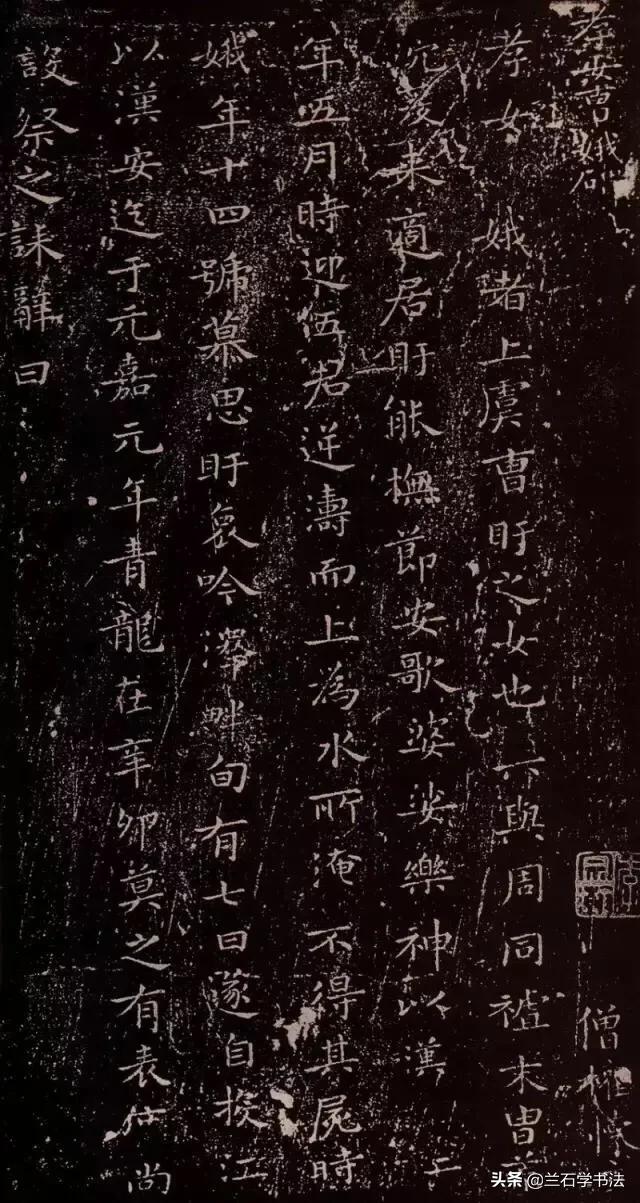 孝女曹娥碑
孝女 娥者上虞曹盱之女也 與周同 末胄
沉爰来適居盱能撫節安歌婆娑樂神以漢
年五月時迎伍君逆濤而上為水所淹不得其屍時
娥年十四號慕思盱哀吟澤畔旬有七日遂自投江
以漢安迄于元嘉元年青龍在辛卯莫之有表 尚
設祭之誄辭曰
僧權
头条@兰石学书法